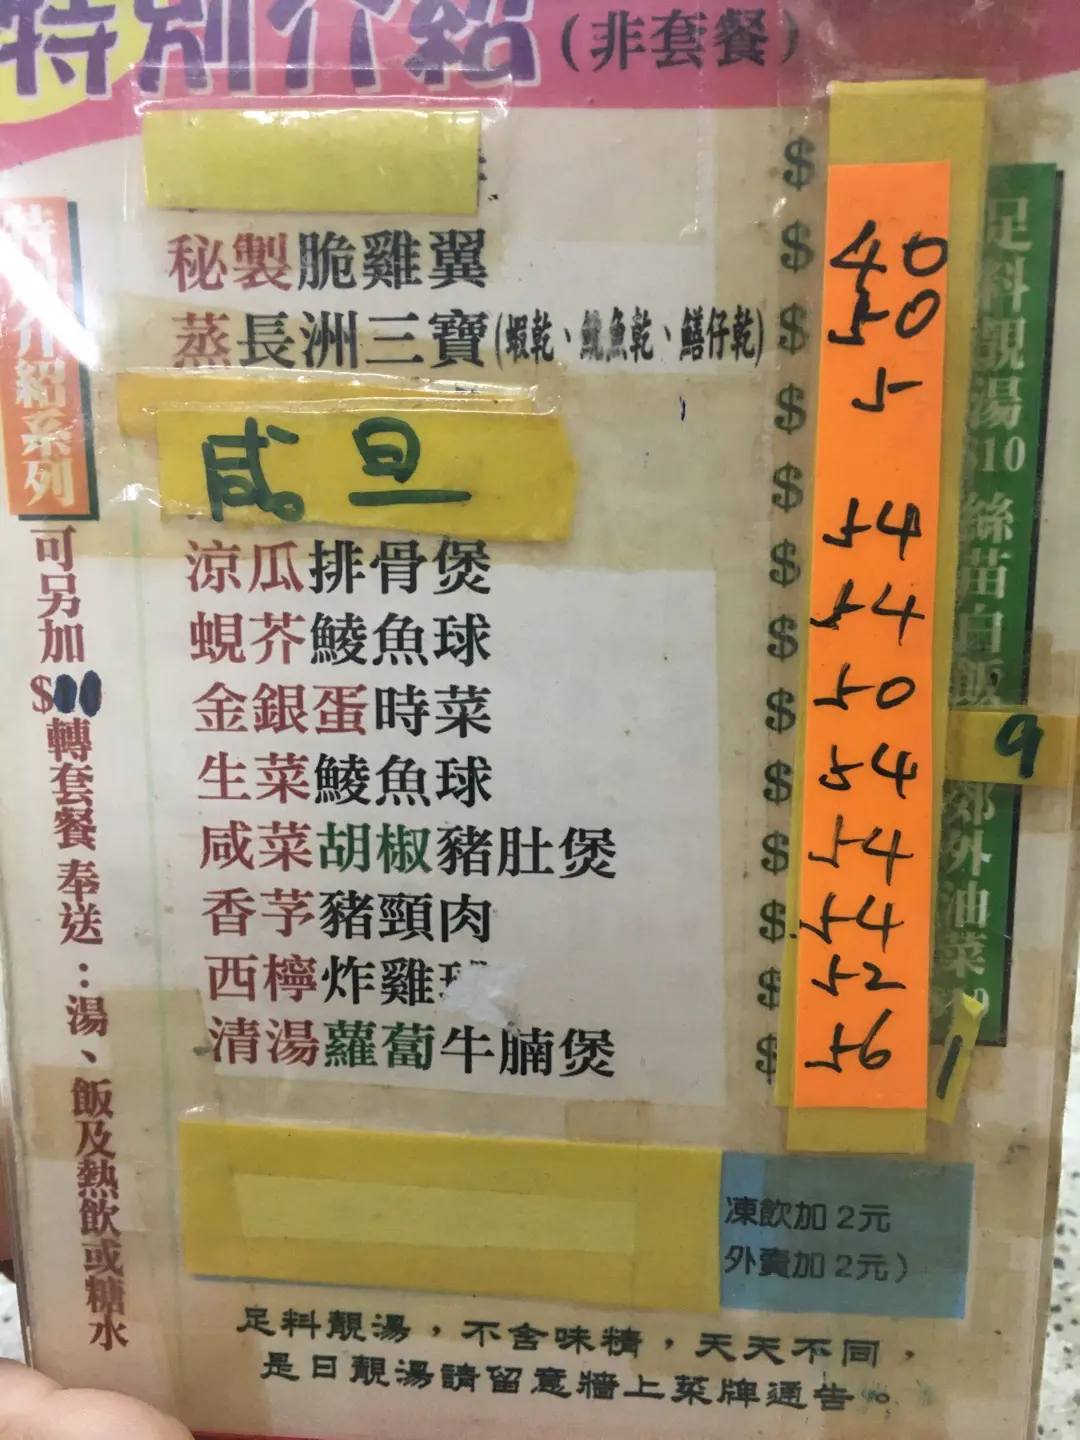 特別介紹(非套餐)
$
秘製脆雞翼 $ 40
蒸長洲三寶(蝦乾、魷魚乾、鱔仔乾) $ 50
$ 5
咸旦 $
涼瓜排骨煲 $ 54
蜆芥鯪魚球 $ 54
金銀蛋時菜 $ 50
生菜鯪魚球 $ 54
咸菜胡椒豬肚煲 $ 54
香芧豬頸肉 $ 54
西檸炸雞 $ 52
清湯蘿蔔牛腩煲 $ 56
特介紹系列
可另加$
轉套餐奉送:湯、飯及熱飲或糖水
足料靚湯 $10
絲苗白飯 9
郊外油菜 1
凍飲加2元
外賣加2元)
足料靚湯,不含味精,天天不同,
是日靚湯請留意牆上菜牌通告。